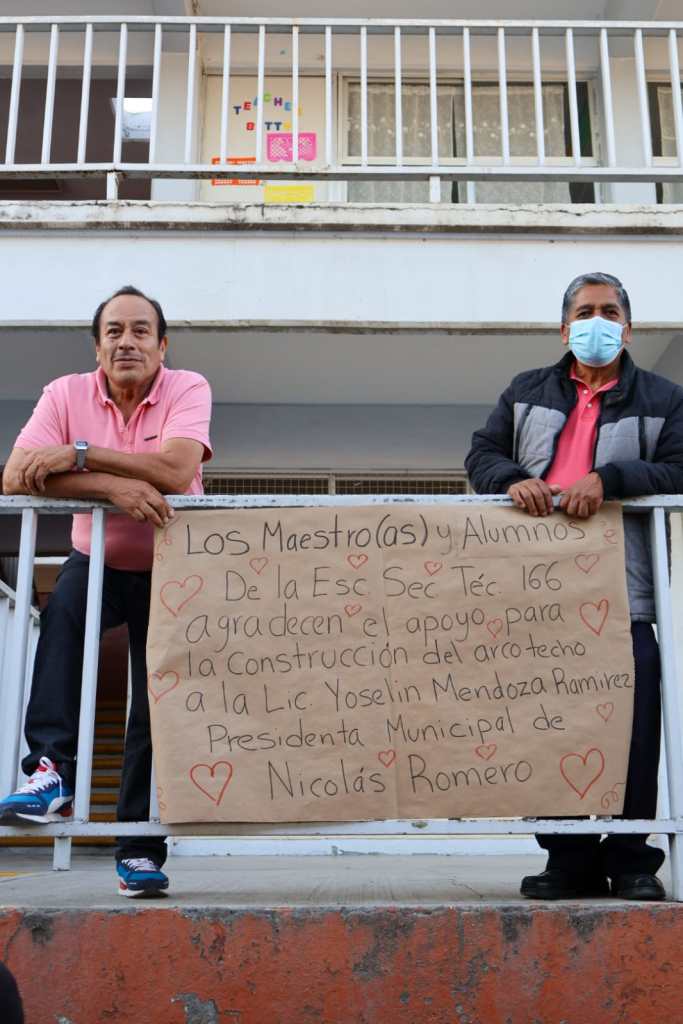 TEACHER
BETTY
Los Maestro(as) y Alumnos
De la Esc. Sec Téc. 166
agradecen el apoyo para
la construcción del arcotecho
a la Lic. Yoselin Mendoza Ramirez
Presidenta Municipal de
Nicolás Romero